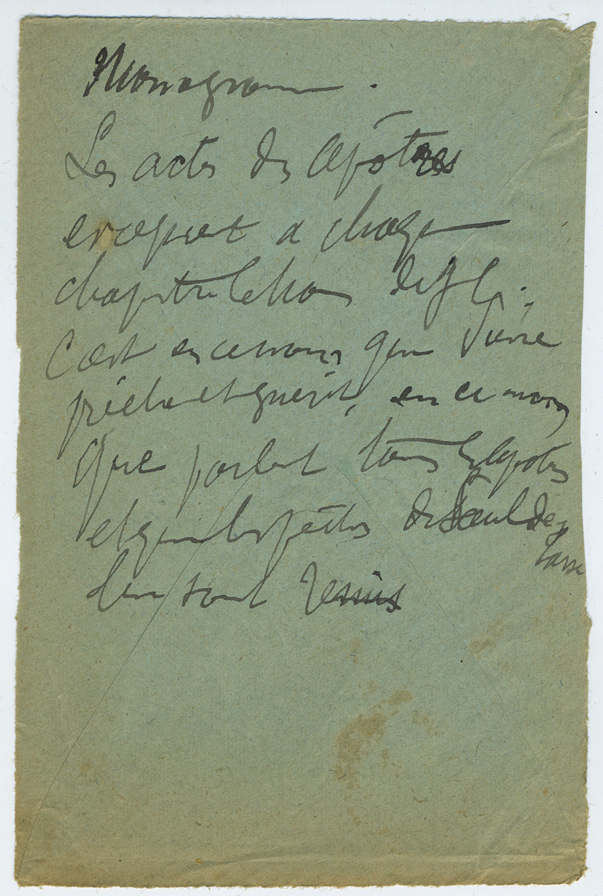 Monogramme.
Les actes des Apôtres
evoquent a chaque
chapitre le Nom de
C'est en ce nom que Pierre
prêche et guérit, en ce nom
que parlent tous les Apôtres
et que les péchés de Saul de
Tarse
lui sont remis